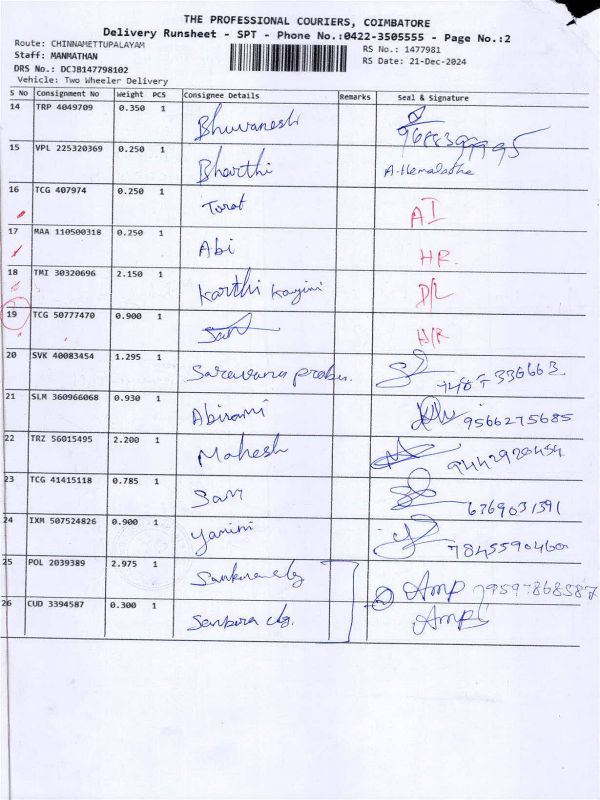 THE PROFESSIONAL COURIERS, COIMBATORE
Delivery Runsheet - SPT - Phone No.:0422-3505555 - Page No.:2
Route: CHINNAMETTUPALAYAM
RS No.: 1477981
Staff: MANMATHAN
RS Date: 21-Dec-2024
DRS No.: DCJB147798102
Vehicle: Two Wheeler Delivery
S No Consignment No Weight PCS Consignee Details Remarks Seal & Signature
14 TRP 4049709 0.350 1 Bhuvanesh
15 VPL 225320369 0.250 1 Bharthi A. Hemalatha
16 TCG 407974 0.250 1 Tarat AI
17 MAA 110500318 0.250 1 Abi HR.
18 TMI 30320696 2.150 1 Karthi D/L
19 TCG 50777470 0.900 1 H/R
20 SVK 40083454 1.295 1 Saravana prabu.
21 SLM 360966068 0.930 1 Abirami 9566275685
22 TRZ 56015495 2.200 1 Mahesh 9442920454
23 TCG 41415118 0.785 1 Sam 6369031391
24 IXM 507524826 0.900 1 Yamini 7845590460
25 POL 2039389 2.975 1 Amp
26 CUD 3394587 0.300 1